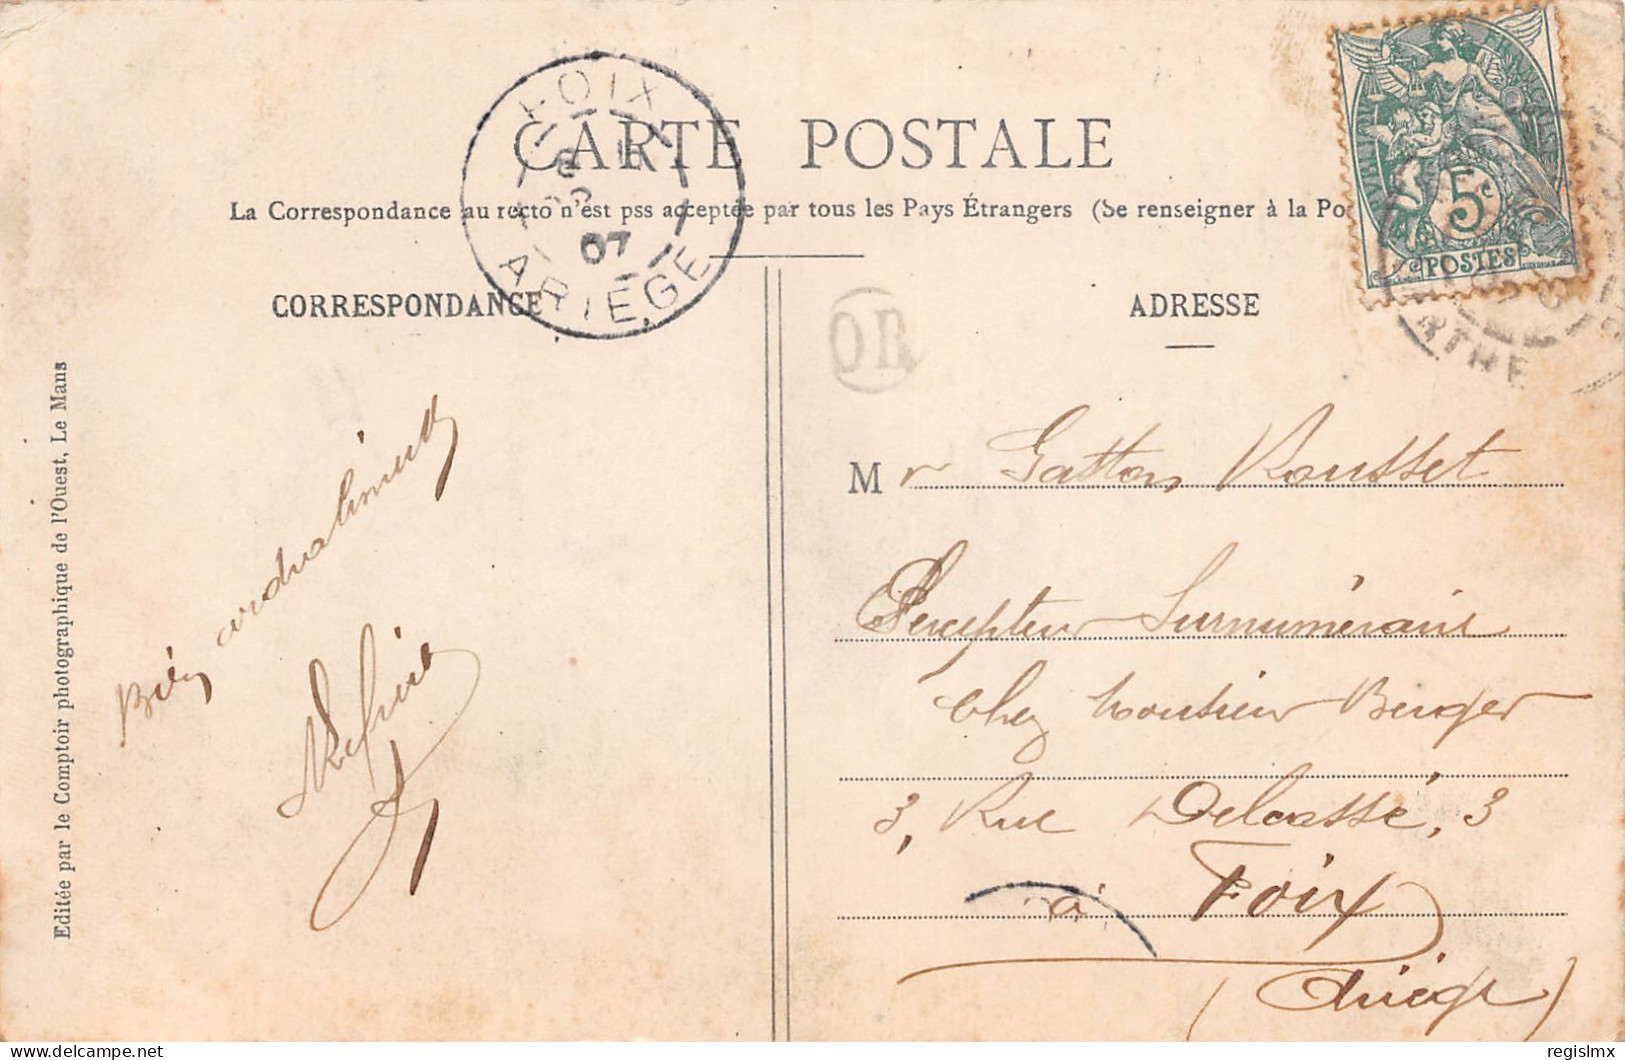 CARTE POSTALE
La Correspondance au recto n'est pss acceptée par tous les Pays Étrangers (Se renseigner à la Po
CORRESPONDANCE
ADRESSE
FOIX
07
ARIÈGE
OR
RÉPUBLIQUE FRANÇAISE
5c
POSTES
RTHE
Editée par le Comptoir photographique de l'Ouest, Le Mans
Bien cordialement
Mr Gaston Rousset
Percepteur Surnuméraire
Chez Monsieur Berger
3, Rue Delcassé, 3
à Foix
(Ariège)
delcampe.net
regislmx